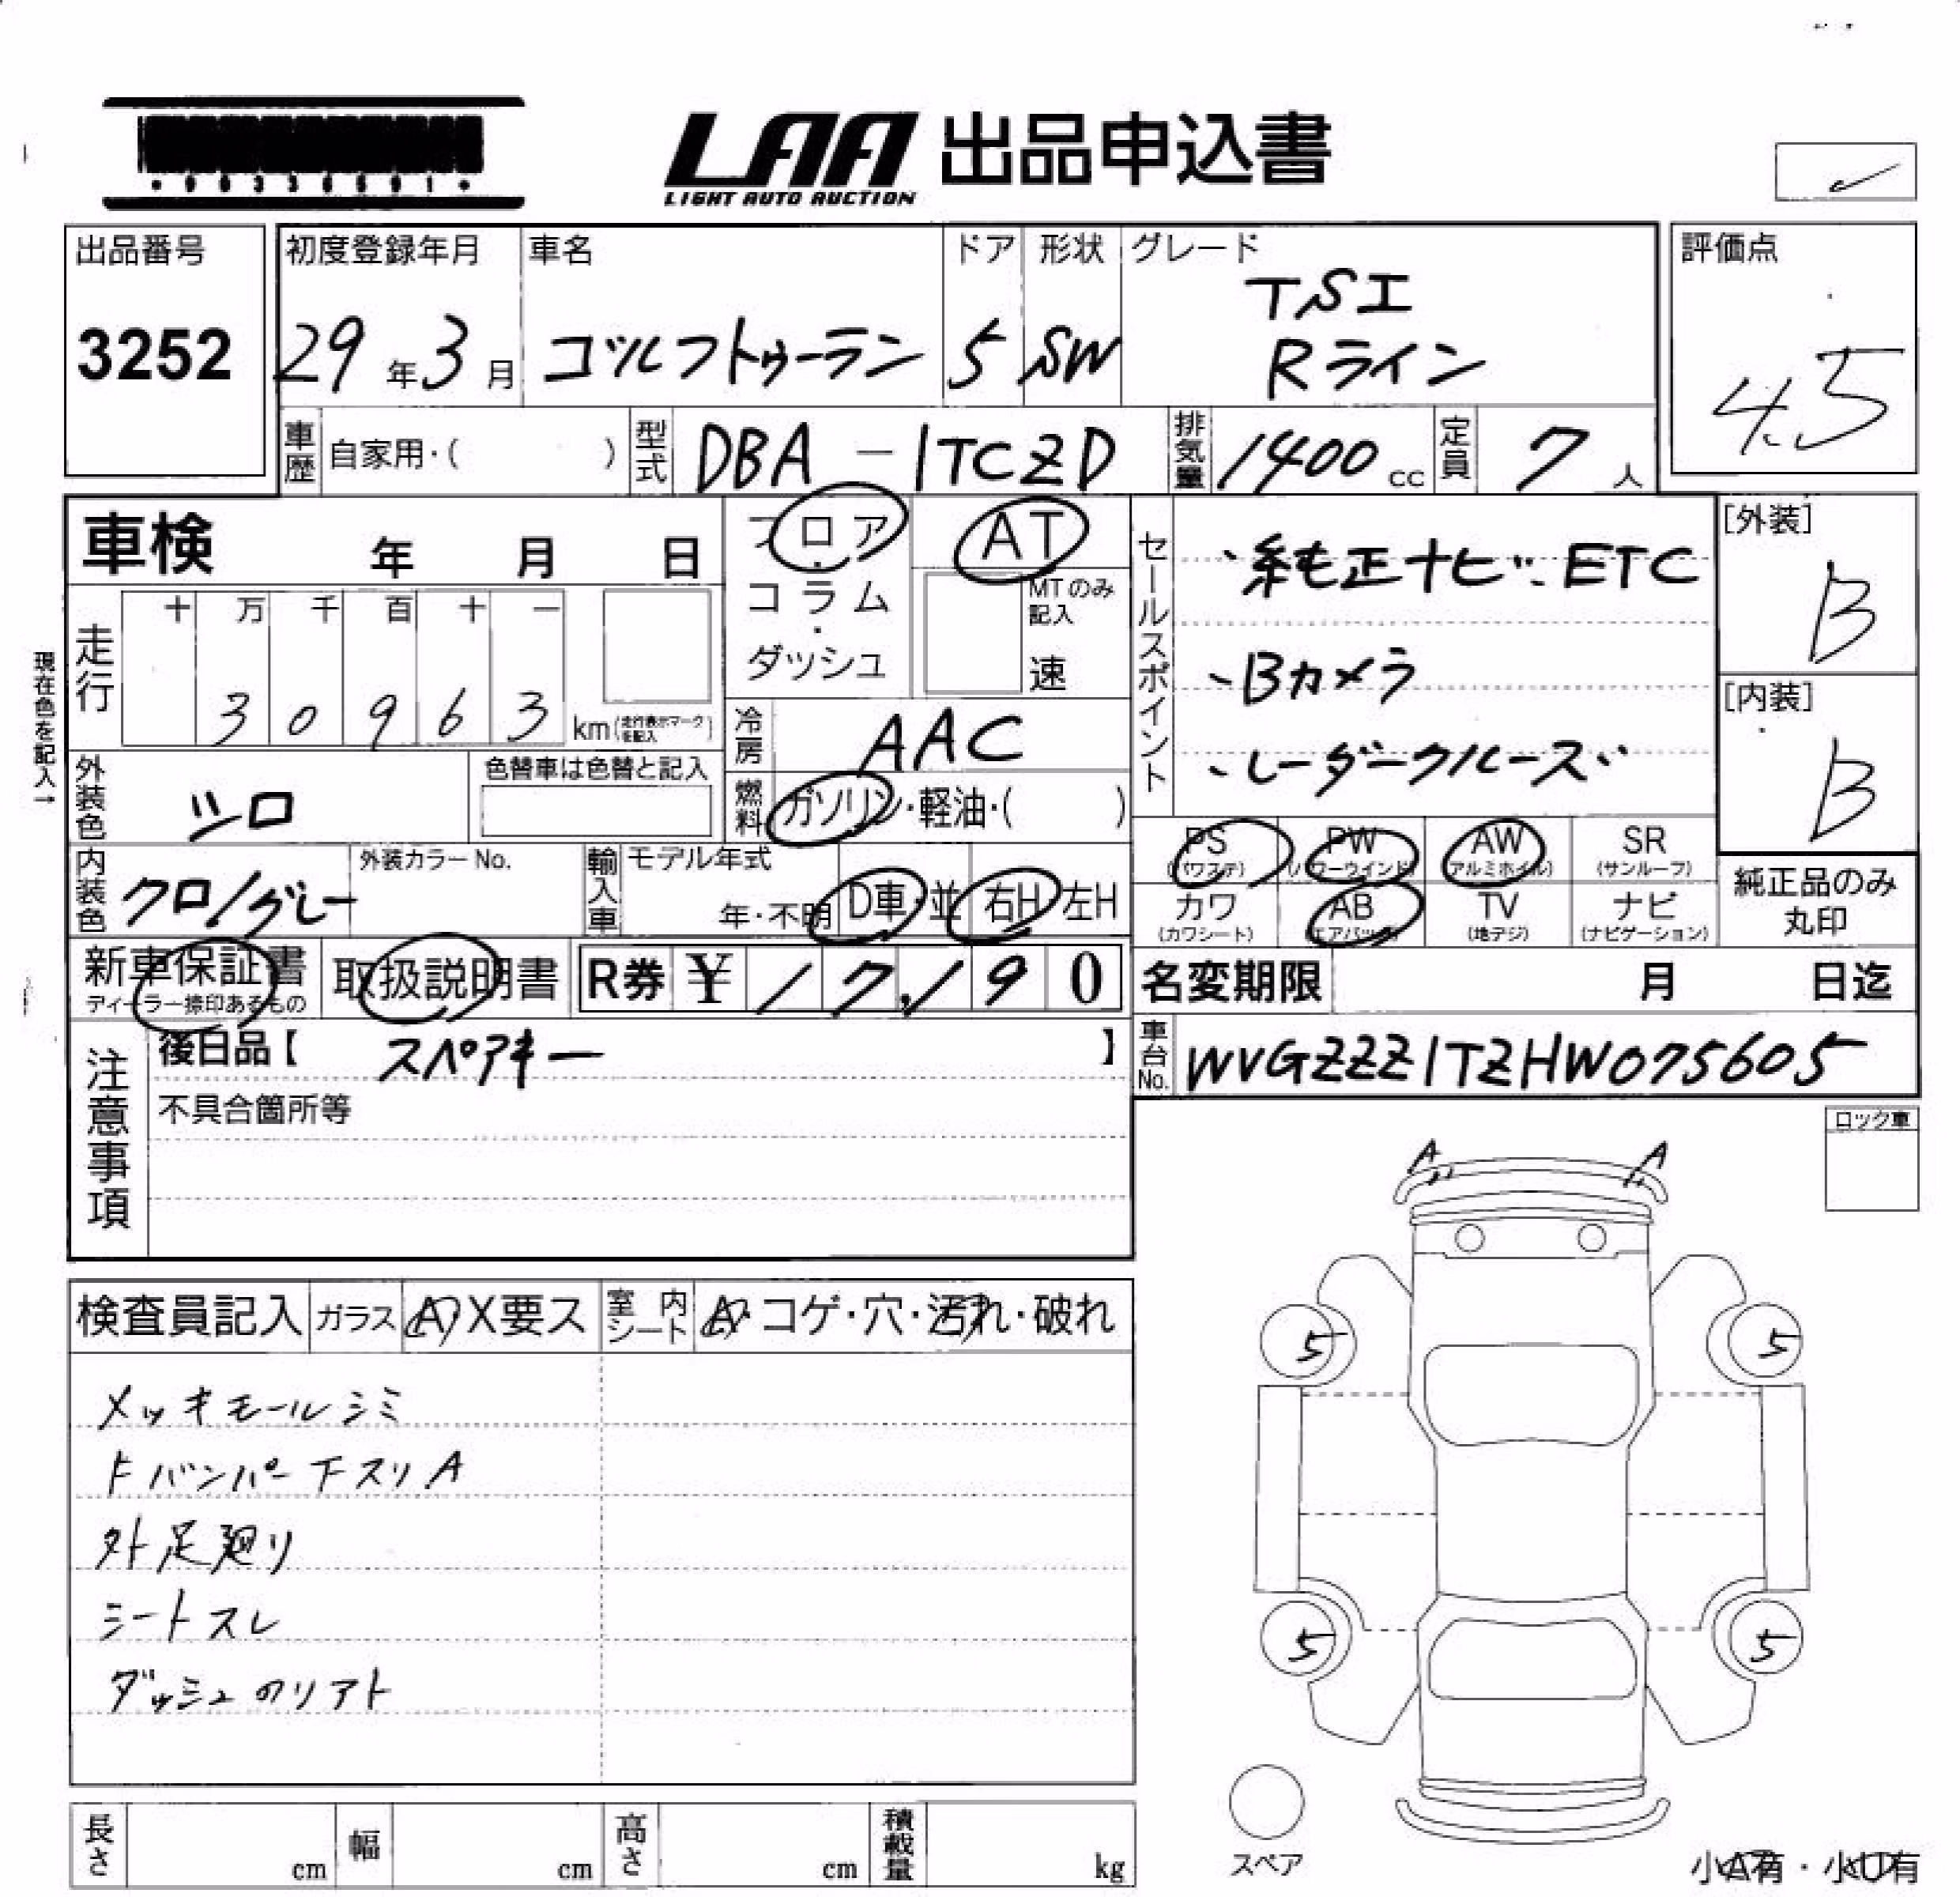 LAA 出品申込書
LIGHT AUTO AUCTION
出品番号
3252
初度登録年月
29年3月
車名
ゴルフトゥーラン
ドア
5
形状
SW
グレード
TSI
Rライン
評価点
4.5
車歴 自家用・( )
型式 DBA-1TCZD
排気量 1400cc
定員 7人
車検 年 月 日
フロア・コラム・ダッシュ
AT
MTのみ記入
速
セールスポイント
、純正ナビ、ETC
、Bカメラ
、レーダークルーズ、
[外装]
B
[内装]
B
現在色を記入→
走行
十 万 千 百 十 一
3 0 9 6 3 km(走行表示マークを記入)
冷房 AAC
外装色 シロ
色替車は色替と記入
燃料 ガソリン・軽油・( )
内装色 クロ/グレー
外装カラーNo.
輸入車
モデル年式
年・不明
D車・並
右H 左H
PS(パワステ)
PW(パワーウインド)
AW(アルミホイル)
SR(サンルーフ)
カワ(カワシート)
AB(エアバッグ)
TV(地デジ)
ナビ(ナビゲーション)
純正品のみ丸印
新車保証書
ディーラー捺印あるもの
取扱説明書
R券 ¥17,190
名変期限 月 日迄
注意事項
後日品【 スペアキー 】
不具合箇所等
車台No. WVGZZZ1TZHW075605
ロック車
A A
検査員記入
ガラス A X要ス
室内シート A・コゲ・穴・汚れ・破れ
メッキモールシミ
Fバンパー下スリA
外足廻り
シートスレ
ダッシュのリアト
5 5
5 5
スペア
小A有・小U有
長さ cm
幅 cm
高さ cm
積載量 kg